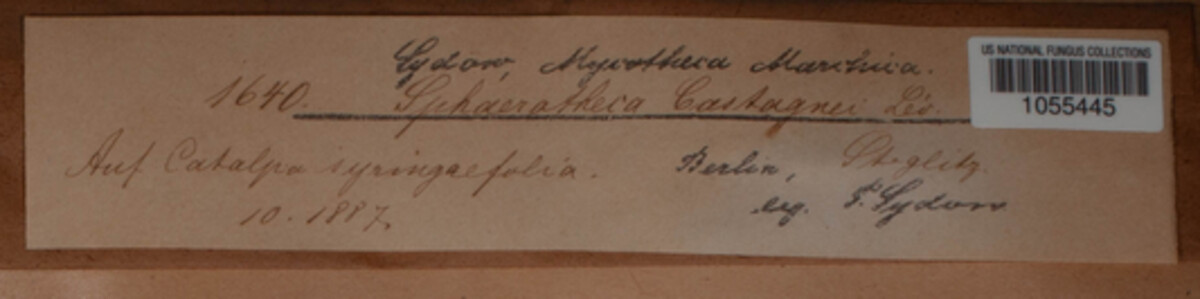 Sydow, Mycotheca Marchica.
US NATIONAL FUNGUS COLLECTIONS
1055445
1640. Sphaerotheca Castagnei Lév.
Auf Catalpa syringaefolia. Berlin, Steglitz.
10. 1887. leg. P. Sydow